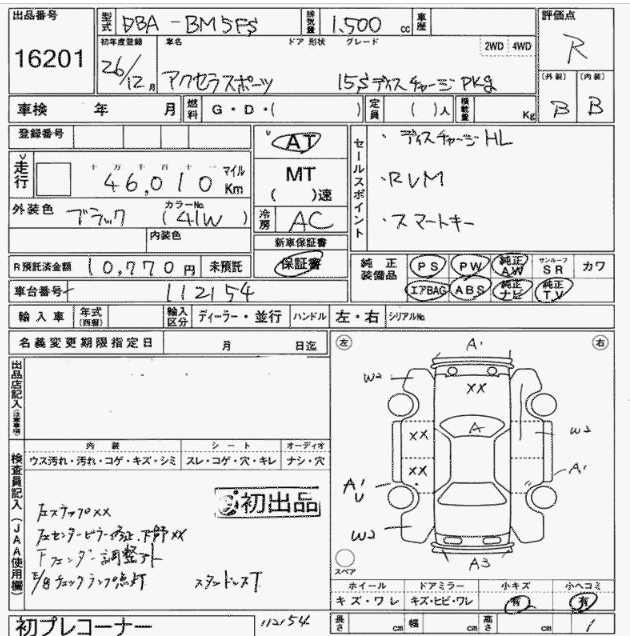 出品番号 型式 DBA-BM5FS 排気量 1,500 cc 車歴 評価点
16201 初年度登録 車名 ドア 形状 グレード 2WD 4WD R
26/12月 アクセラスポーツ 15Sディスチャージ PKg 〔外装〕 〔内装〕
車検 年 月 燃料 G・D・( ) 定員 ( )人 積載量 Kg B B
登録番号 AT セールスポイント ・ディスチャージHL
走行 十万千百十一 46,010 マイル Km MT ( )速 ・RVM
外装色 ブラック カラーNo. (41W) 冷房 AC ・スマートキー
内装色 新車保証書
R預託済金額 10,770円 未預託 保証書 純正装備品 PS PW 純正AW サンルーフSR カワ
車台番号 112154 エアBAG ABS 純正ナビ 純正TV
輸入車 年式(西暦) 輸入区分 ディーラー・並行 ハンドル 左・右 シリアルNo.
名義変更期限指定日 月 日迄 左 右
出品店記入(注意事項)
A'
W2
XX
A
XX
W2
XX
A'
A'
W2
A3
スペア
内装 シート オーディオ
ウス汚れ・汚レ・コゲ・キズ・シミ スレ・コゲ・穴・キレ ナシ・穴
検査員記入(JAA使用欄)
初出品
左ステップXX
左センターピラー修正、下部XX
Fフェンダー調整アト
チェックランプ点灯
ホイール ドアミラー 小キズ 小ヘコミ
キズ・ワレ キズ・ヒビ・ワレ 有 有
初プレコーナー 112154 長さ cm 幅 cm 高さ cm